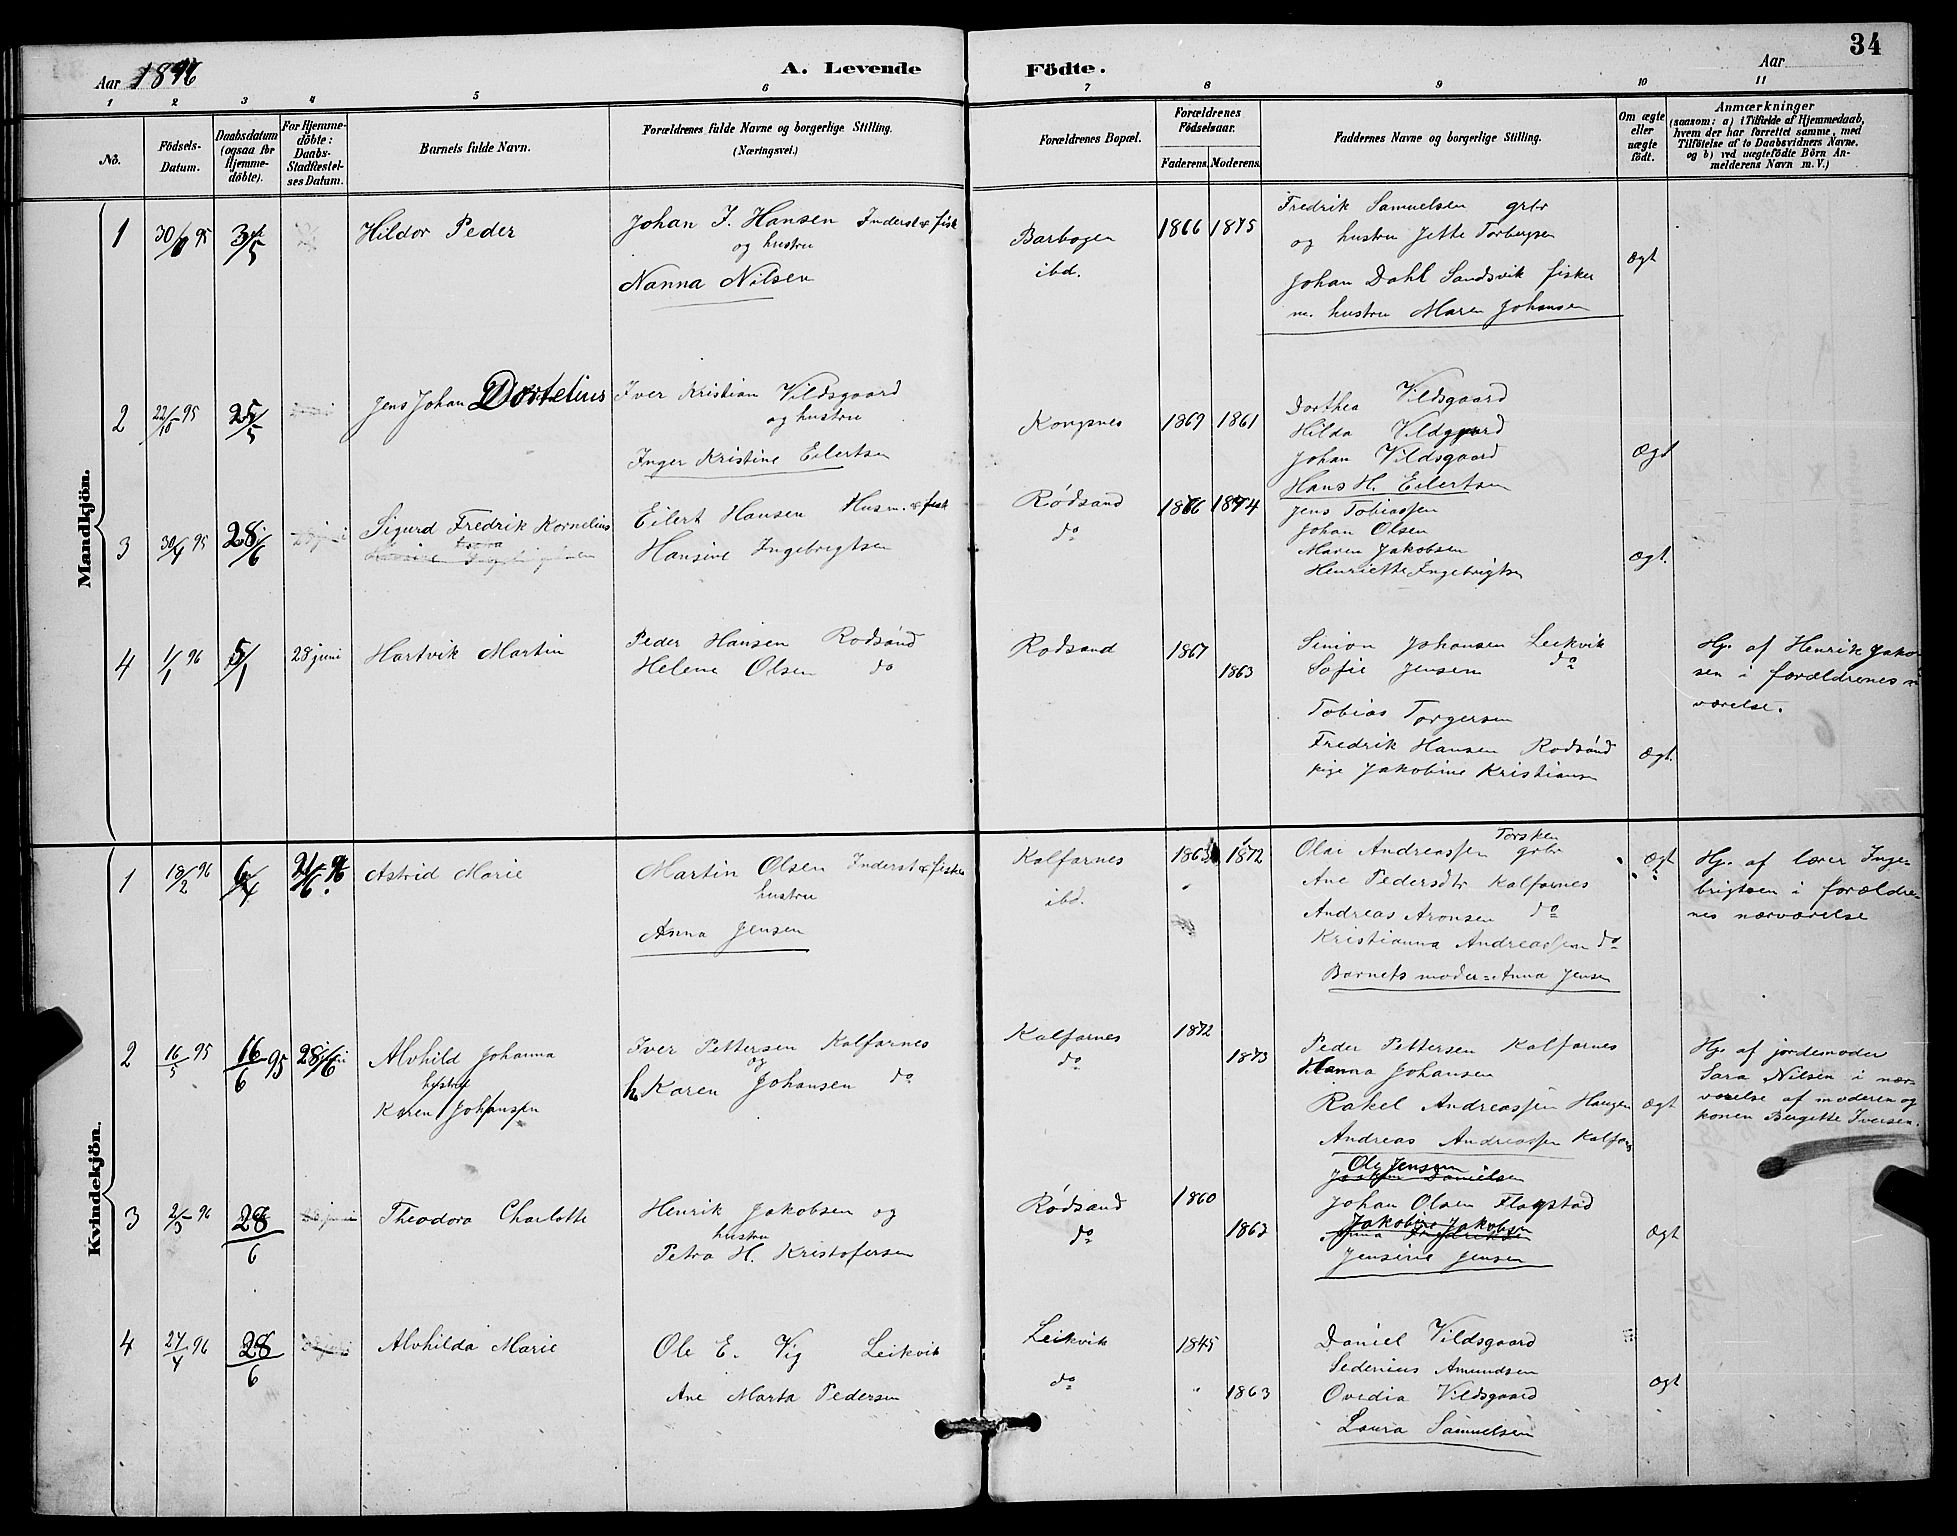 34
Aar 1896 A. Levende Födte. Aar
1 2 3 4 5 6 7 8 9 10 11
No.
Födsels-Datum.
Daabsdatum (ogsaa for Hjemmedöbte).
For Hjemmedöbte: Daabs-Stadfæstelses Datum.
Barnets fulde Navn.
Forældrenes fulde Navne og borgerlige Stilling.
(Næringsvei.)
Forældrenes Bopæl.
Forældrenes Födselsaar.
Faderens. Moderens.
Faddernes Navne og borgerlige Stilling.
Om ægte eller uægte födt.
Anmærkninger
(saasom: a) i Tilfælde af Hjemmedaab,
hvem der har forrettet samme, med
Tilföielse af to Daabsvidners Navne.
og b) ved uægtefödte Börn Anmelderens Navn m. V.)
Mandkjön.
1 95 Hildor Peder
Johan J. Hansen Inderst & fisk
og hustru
Nanna Nilsen
Barbogen
ibd.
1866 1875
Fredrik Samuelsen grbr
og hustru Jette Torbergsen
Johan Dahl Sandsvik fisker
m. hustru Maren Johansen
Ægt
2 22/10 95 25/5
Jens Johan Dortelius
Iver Kristian Vildsgaard
og hustru
Inger Kristine Eilertsen
Kongsnes
1869 1861
Dorthea Vildsgaard
Hilda Vildgaard
Johan Vildsgaard
Hans H. Eilertsen
Ægt
3 30/4 95 28/6
Sigurd Fredrik Kornelius
Eilert Hansen Husm. & fisk
Hansine Ingebrigtsen
Rødsand
do
1874
Jens Tobiassen
Johan Olsen
Maren Jakobsen
Henriette Ingebrigtsen
Ægt.
4 1/1 96 28 juni
Hartvik Martin
Peder Hansen Rodsand
Helene Olsen do
Rodsand
1867
1863
Simon Johansen Leikvik
Sofie Jensen do
Tobias Torgersen
Fredrik Hansen Rodsand
pige Jakobine Kristiansen
Ægt.
Hj. af Henrik Jakobsen i forældrenes
værelse.
Kvindekjön.
1 18/2 96
Astrid Marie
Martin Olsen Inderst & fisker
hustru
Anna Jensen
Kalfarnes
ibd.
1863 1872
Olai Andreassen Torsken grbr
Ane Pedersdtr Kalfarnes
Andreas Aronsen do
Kristianna Andreassen do
Barnets moder = Anna Jensen
Ægt
Hj. af lærer Ingebrigtsen i forældrenes nærværelse
2 16/5 95 16/6 95 28/6
Alvhild Johanna
hustru
Karen Johansen
Iver Pettersen Kalfarnes
og
h Karen Johansen do
Kalfarnes
do
1872
1873
Peder Pettersen Kalfarnes
Hanna Johansen
Rakel Andreassen Haugen
Andreas Andreassen Kalfarnes
Ægt
Hj. af jordemoder
Sara Nilsen i nærværelse af moderen og
konen Bergitte Iversen.
3 2/3 96 28/6
Theodora Charlotte
Henrik Jakobsen og
hustru
Petra H. Kristofersen
Rødsand
do
1860
1863
Ole Jensen
Danielsen
Johan Olsen Flagstad
Jakobine Jakobsen
Fredriksen
Jensine Jensen
Ægt
4 27/4 96 28/6
Alvhilda Marie
Ole E. Vig Leikvik
Ane Marta Pedersen
Leikvik
do
1845
1863
Daniel Vildsgaard
Sedenius Amundsen
Ovedia Vildsgaard
Laura Samuelsen
Ægt